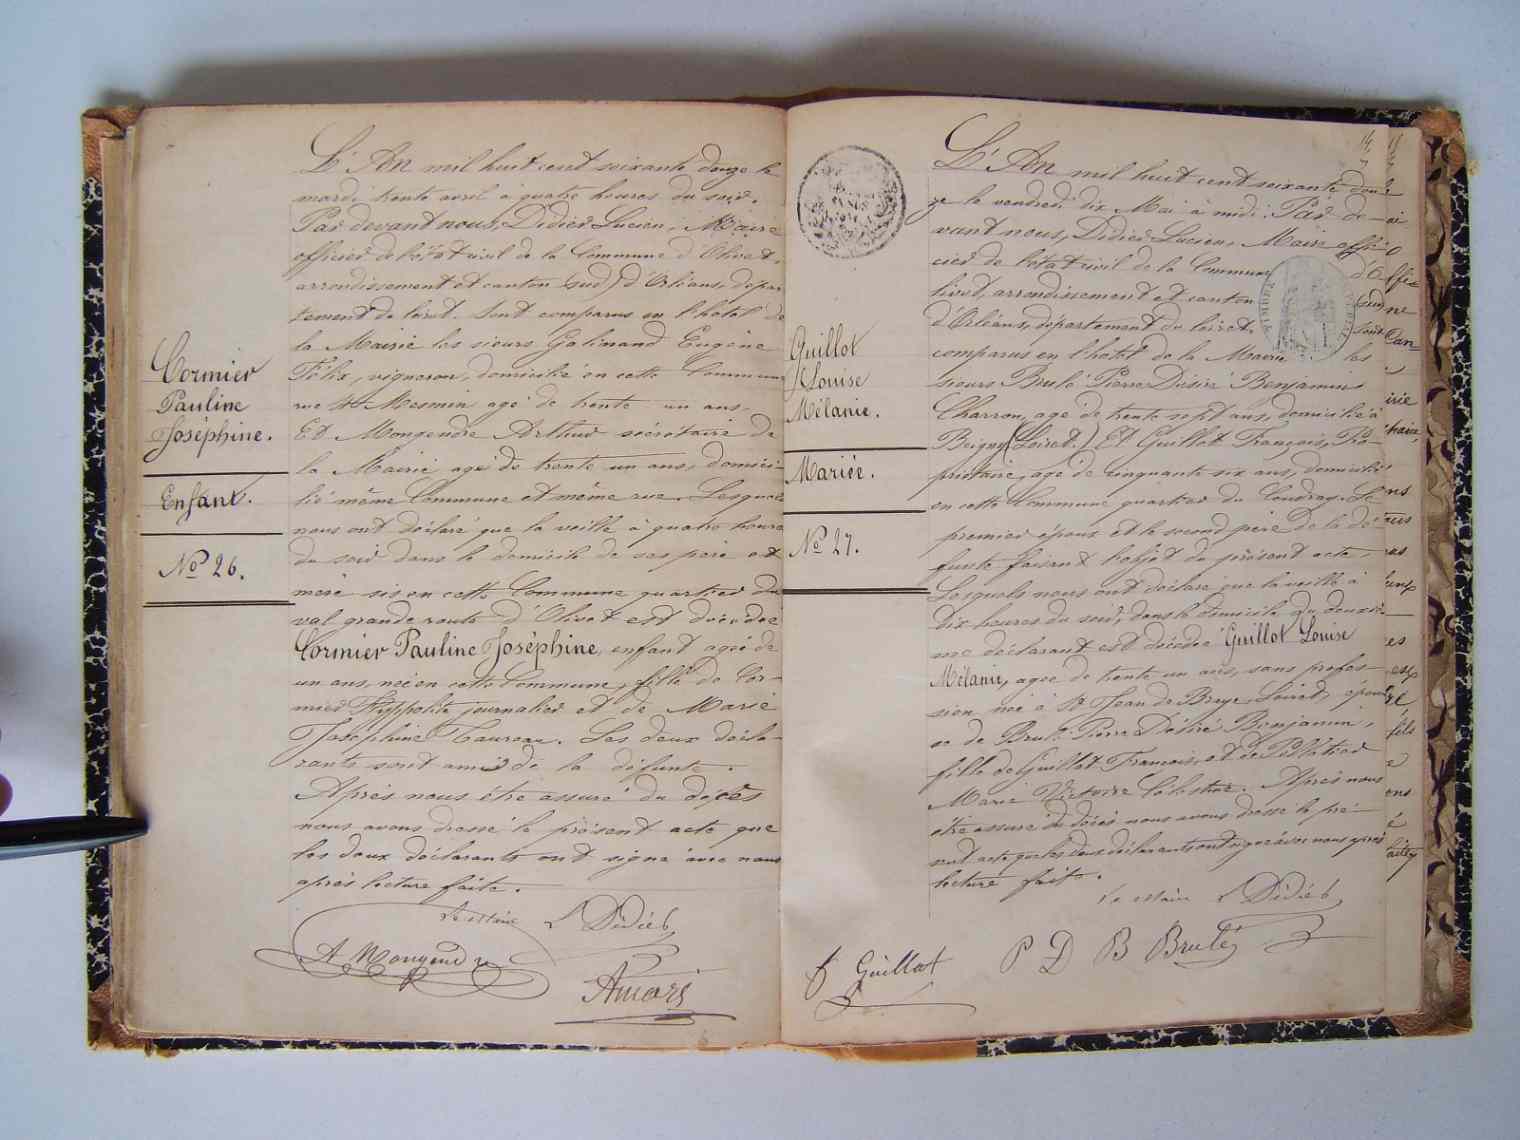 Cormier
Pauline
Joséphine.
Enfant.
No 26.
L'An mil huit cent soixante douze le
mardi trente avril à quatre heures du soir.
Par devant nous, Didier Lucien, Maire
officier de l'état civil de la Commune d'Olivet,
arrondissement et canton (sud) d'Orléans, dépar
tement du loiret. Sont comparus en l'hôtel de
la Mairie les sieurs Galinand Eugène
Félix, vigneron, domicilié en cette Commune
rue St Mesmin agé de trente un ans.
Et Mongendre Arthur sécrétaire de
la Mairie agé de trente un ans, domici-
lié même Commune et même rue. Lesquels
nous ont déclaré que la veille à quatre heures
du soir dans le domicile de ses père et
mère sis en cette Commune quartier du
val grande route d'Olivet est décédée
Cormier Pauline Joséphine, enfant agée de
un ans, née en cette Commune, fille de Cor-
mier Hyppolite journalier et de Marie
Joséphine. Les deux décla-
rants sont amis de la défunte.
Après nous être assuré du décès
nous avons dressé le présent acte que
les deux déclarants ont signé avec nous
après lecture faite.
Le Maire L Didier
A Mongendre
Guillot
Louise
Mélanie.
Mariée.
No 27.
L'An mil huit cent soixante dou
ze le vendredi dix Mai à midi. Par de-
vant nous, Didier Lucien, Maire offi
cier de l'état civil de la Commune d'O
livet, arrondissement et canton (sud)
d'Orléans, département du loiret. Sont
comparus en l'hôtel de la Mairie les
sieurs Brulé Pierre Désiré Benjamin
Charron, agé de trente sept ans, domicilié à
(Loiret.) Et Guillot François, Pro-
priétaire, agé de cinquante six ans, domicilié
en cette Commune quartier du Coudray. Le
premier époux et le second père de la dé-
funte faisant l'objet du présent acte.
Lesquels nous ont déclaré que la veille à
dix heures du soir, dans le domicile du deuxiè
me déclarant est décédée Guillot Louise
Mélanie, agée de trente un ans, sans profes-
sion née à St Jean de Braye Loiret, épou
se de Brulé Pierre Désiré Benjamin,
fille de Guillot François, et de
Marie Victoire Célestine. Après nous
être assuré du décès nous avons dressé le pré-
sent acte que les deux déclarants ont signé avec nous après
lecture faite.
Le Maire L Didier
f Guillot
P D B Brulé